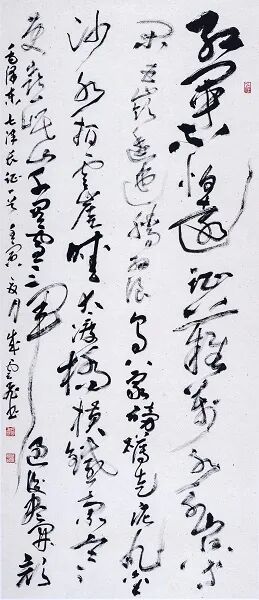 红軍不怕遠征難萬水千山只等
闲五嶺逶迤腾细浪乌蒙磅礴走泥丸金
沙水拍雲崖暖大渡橋横鐵索寒
更喜岷山千里雪三軍過後尽開颜
毛泽东七律长征一首壬寅八月